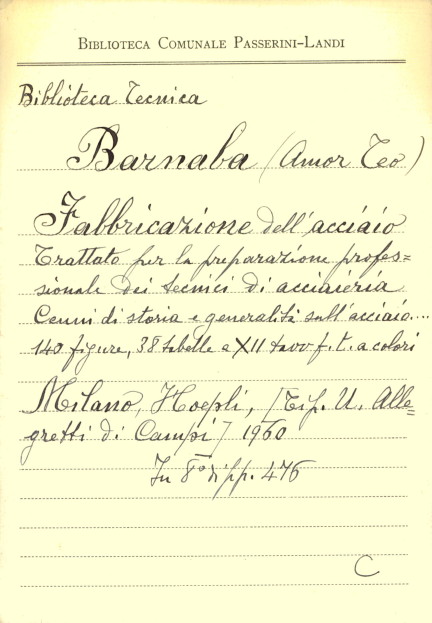 BIBLIOTECA COMUNALE PASSERINI-LANDI
Biblioteca Tecnica
Barnaba (Amor Teo)
Fabbricazione dell'acciaio
Trattato per la preparazione profes=
sionale dei tecnici di acciaieria
Cenni di storia e generalità sull'acciaio...
140 figure, 38 tabelle e XII tavv. f. t. a colori
Milano, Hoepli, [Tip. U. Alle=
gretti di Campi] 1960
In 8° di pp. 476
C